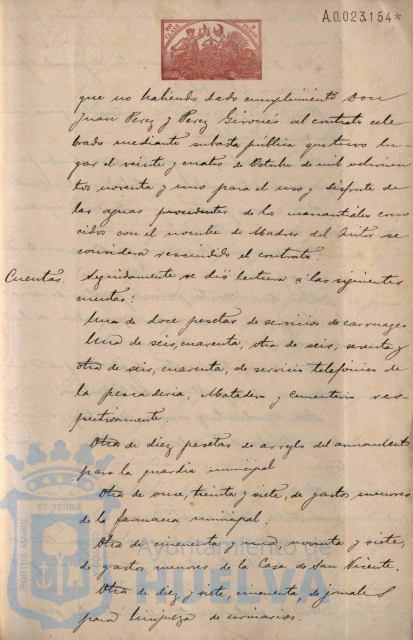 A.0.023.154*
que no habiendo dado cumplimiento Don
Juan Perez y Perez Gironés al contrato cele
brado mediante subasta pública que tuvo lu-
gar el veinte y cuatro de Octubre de mil ochocien
tos noventa y uno para el uso y disfrute de
las aguas procedentes de los manantiales cono
cidos con el nombre de Madres del Pintor se
considera rescindido el contrato.
Cuentas. Seguidamente se dió lectura a las siguientes
cuentas:
Una de doce pesetas de servicios de carruages
Una de seis, cuarenta, otra de seis, sesenta y
otra de seis, cuarenta, de servicio telefónico de
la pescaderia, Matadero y cementerio res-
pectivamente.
Otra de diez pesetas de arreglo del armamento
para la guardia municipal
Otra de once, treinta y siete, de gastos menores
de la farmacia municipal.
Otra de cincuenta y una, noventa y siete,
de gastos menores de la Casa de San Vicente.
Otra de diez y siete, cincuenta de jornales
para limpieza de urinarios.
PORTUS MARIS
ET TERRA
Ayuntamiento de
HUELVA